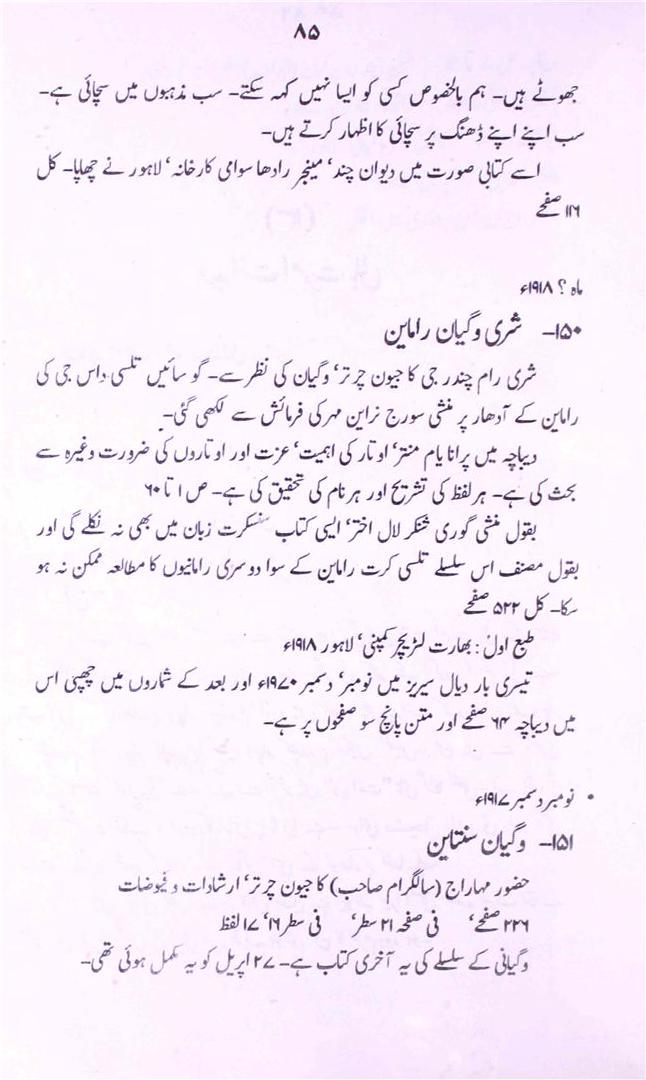 ۸۵
جھوٹے ہیں۔ ہم بالخصوص کسی کو ایسا نہیں کہہ سکتے۔ سب مذہبوں میں سچائی ہے۔
سب اپنے اپنے ڈھنگ پر سچائی کا اظہار کرتے ہیں۔
اسے کتابی صورت میں دیوان چند‘ مینجر رادھا سوامی کارخانہ‘ لاہور نے چھاپا۔ کل
۱۲۶ صفحے
ماہ ؟ ۱۹۱۸ء
۱۵۰۔ شری وگیان راماین
شری رام چندر جی کا جیون چرتر‘ وگیان کی نظر سے۔ گوسائیں تلسی داس جی کی
راماین کے آدھار پر منشی سورج نراین مہر کی فرمائش سے لکھی گئی۔
دیباچہ میں پرانایام منتر‘ اوتار کی اہمیت‘ عزت اور اوتاروں کی ضرورت وغیرہ سے
بحث کی ہے۔ ہر لفظ کی تشریح اور ہر نام کی تحقیق کی ہے۔ ص ۱ تا ۶۰
بقول منشی گوری شنکر لال اختر‘ ایسی کتاب سنسکرت زبان میں بھی نہ نکلے گی اور
بقول مصنف اس سلسلے تلسی کرت راماین کے سوا دوسری رامانیوں کا مطالعہ ممکن نہ ہو
سکا۔ کل ۵۲۲ صفحے
طبع اول : بھارت لٹریچر کمپنی‘ لاہور ۱۹۱۸ء
تیسری بار دیال سیریز میں نومبر‘ دسمبر ۱۹۷۰ء اور بعد کے شماروں میں چھپی اس
میں دیباچہ ۶۴ صفحے اور متن پانچ سو صفحوں پر ہے۔
• نومبر دسمبر ۱۹۱۷ء
۱۵۱۔ وگیان سنتاین
حضور مہاراج (سالگرام صاحب) کا جیون چرتر‘ ارشادات و فیوضات
۲۲۶ صفحے‘ فی صفحہ ۲۱ سطر‘ فی سطر ۱۶‘ ۱۷ لفظ
وگیانی کے سلسلے کی یہ آخری کتاب ہے۔ ۲۷ اپریل کو یہ مکمل ہوئی تھی۔